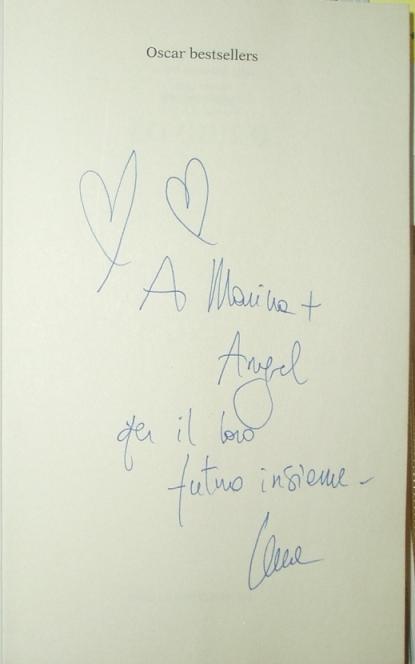 Oscar bestsellers
A Marina +
Angel
per il loro
futuro insieme -